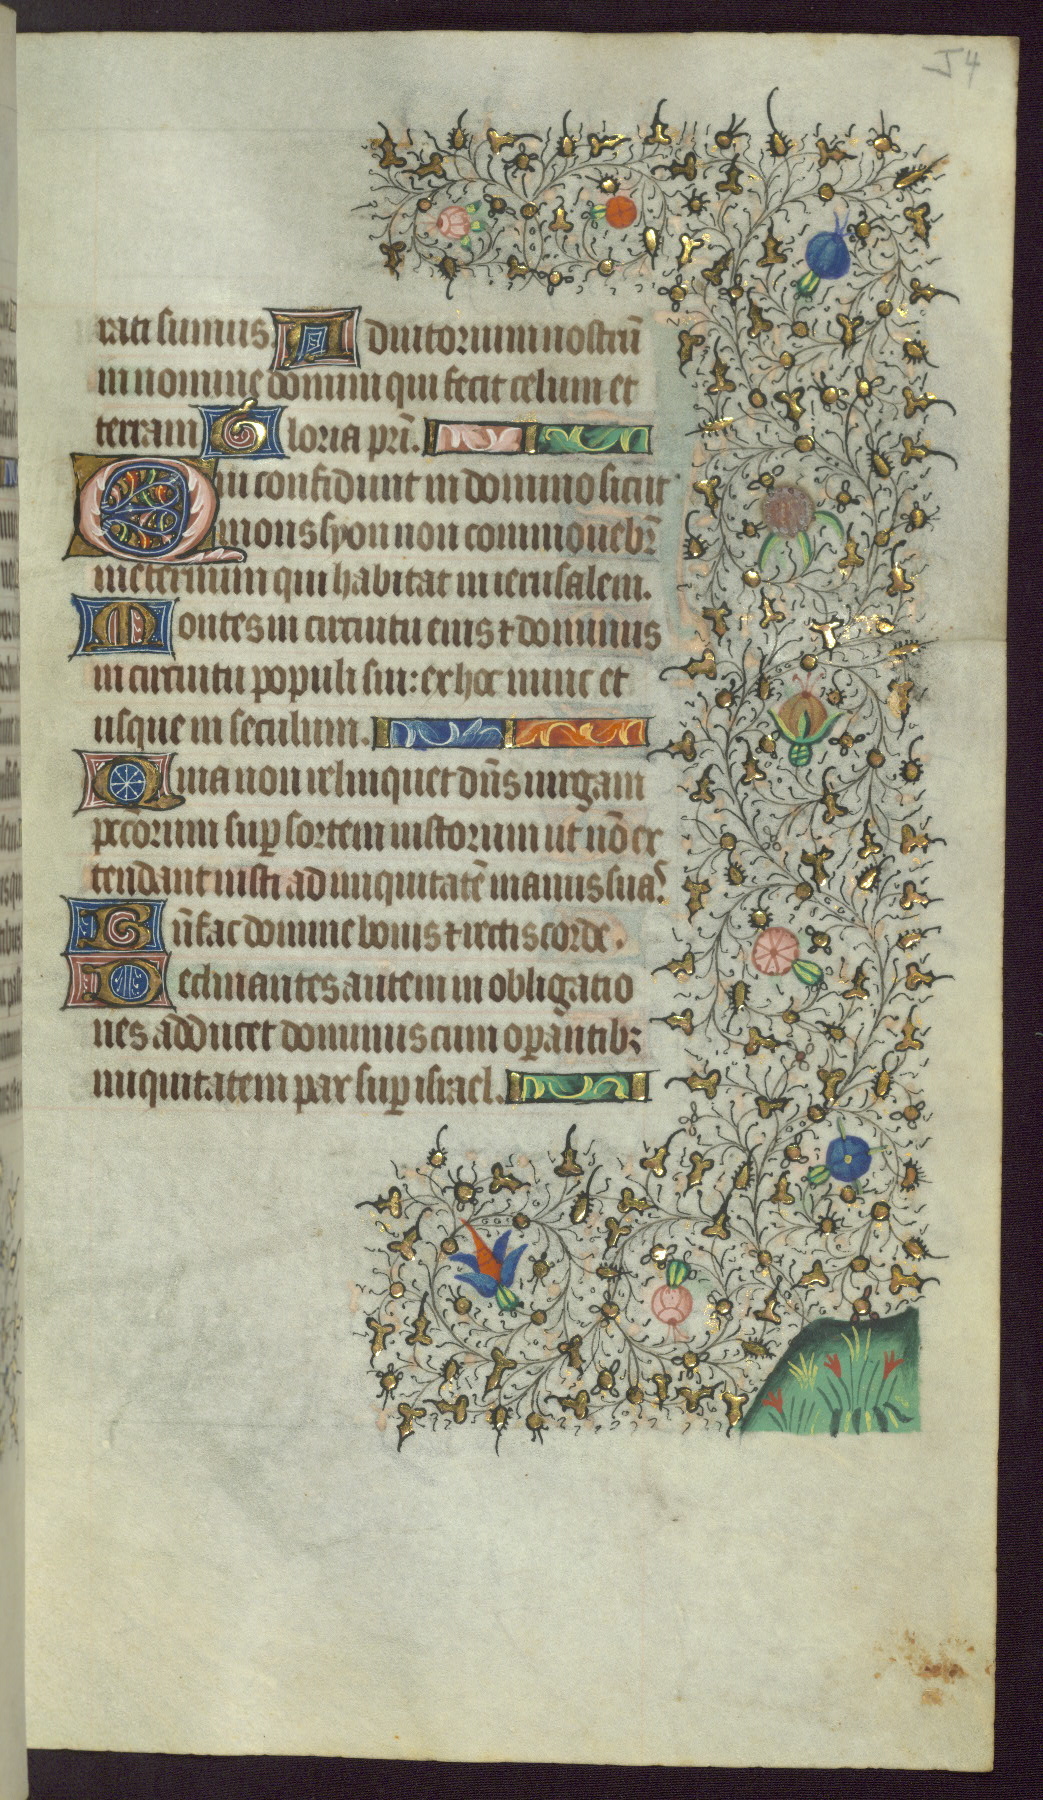 54
rati sumus. Adiutorium nostrū
in nomine domini qui fecit celum et
terram Gloria pr̄i.
Qui confidunt in domino sicut
mons syon non commouebr̄
in eternum qui habitat in ierusalem.
Montes in circuitu eius ⁊ dominus
in circuitu populi sui: ex hoc nunc et
usque in seculum.
Quia non relinquet dn̄s uirgam
pctōrum suꝑ sortem iustorum ut nō ex
tendant iusti ad iniquitatē manus suas
Bn̄fac domine bonis ⁊ rectis corde.
Declinantes autem in obligatio
nes adducet dominus cum oꝑantib;
iniquitatem pax suꝑ israel.